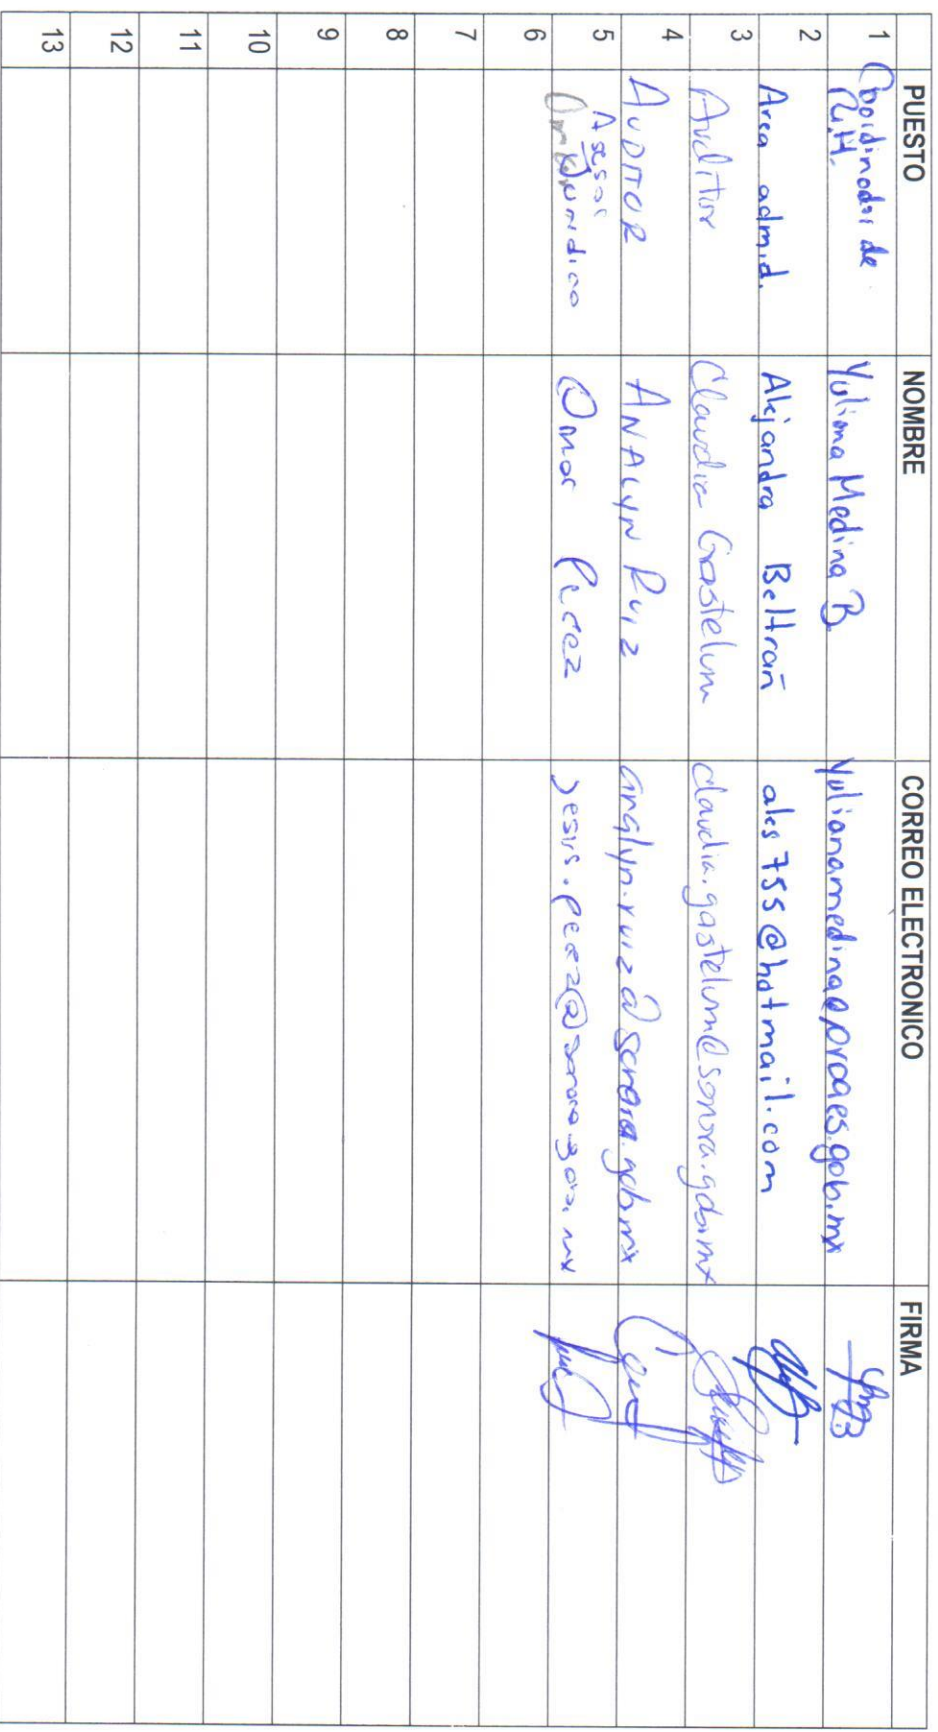 PUESTO NOMBRE CORREO ELECTRONICO FIRMA
1 Coordinador de R.H. Yuliana Medina B. yulianamedina@proaes.gob.mx
2 Area admid. Alejandra Beltrán ales755@hotmail.com
3 Auditor Claudia Gastelum claudia.gastelum@sonora.gob.mx
4 AUDITOR ANALYN RUIZ analyn.ruiz@sonora.gob.mx
5 Asesor Juridico Omar Perez jesus.perez@sonora.gob.mx
6
7
8
9
10
11
12
13